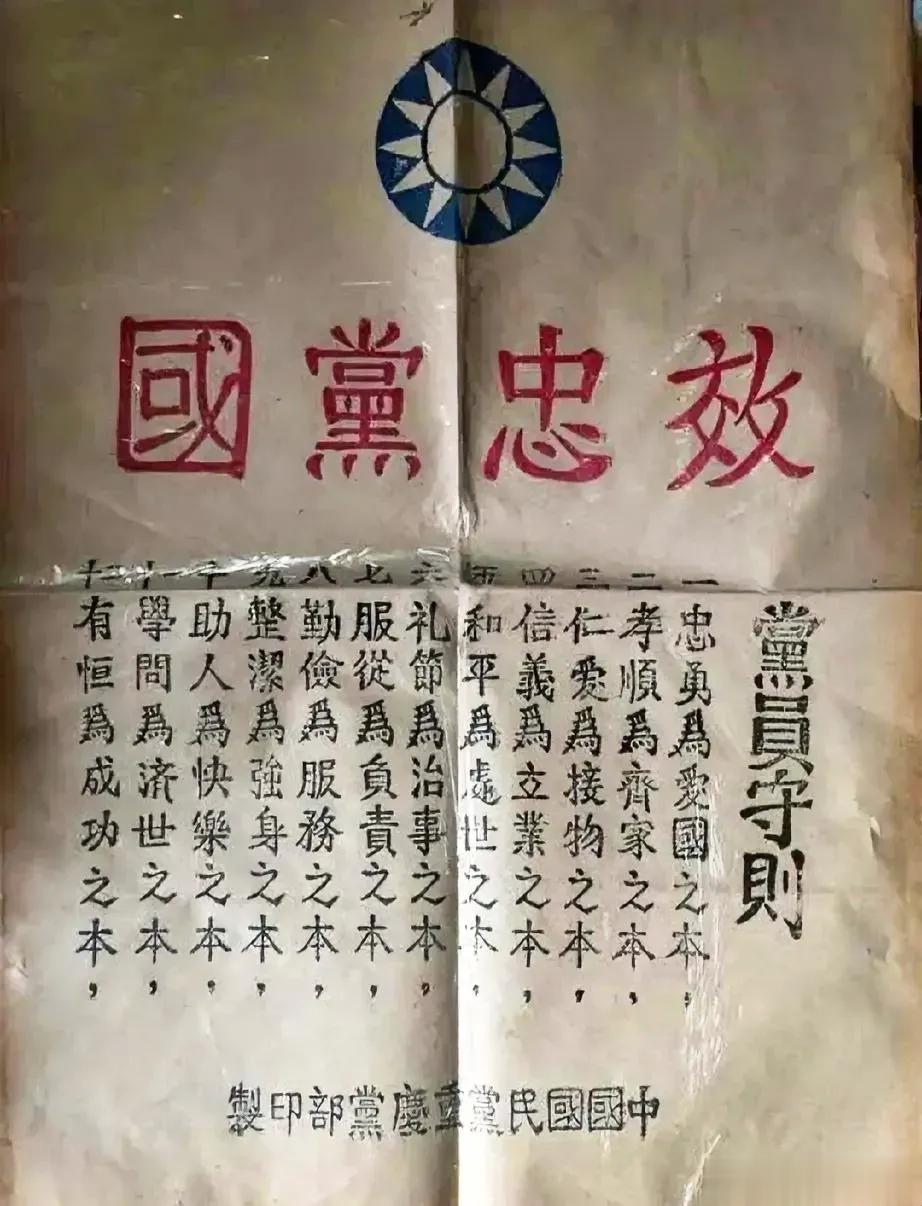 效忠黨國
黨員守則
一忠勇爲愛國之本，
二孝順爲齊家之本，
三仁愛爲接物之本，
四信義爲立業之本，
五和平爲處世之本，
六礼節爲治事之本，
七服從爲負責之本，
八勤儉爲服務之本，
九整潔爲強身之本，
十助人爲快樂之本，
十一學問爲濟世之本，
十二有恒爲成功之本，
中國國民黨重慶黨部印製